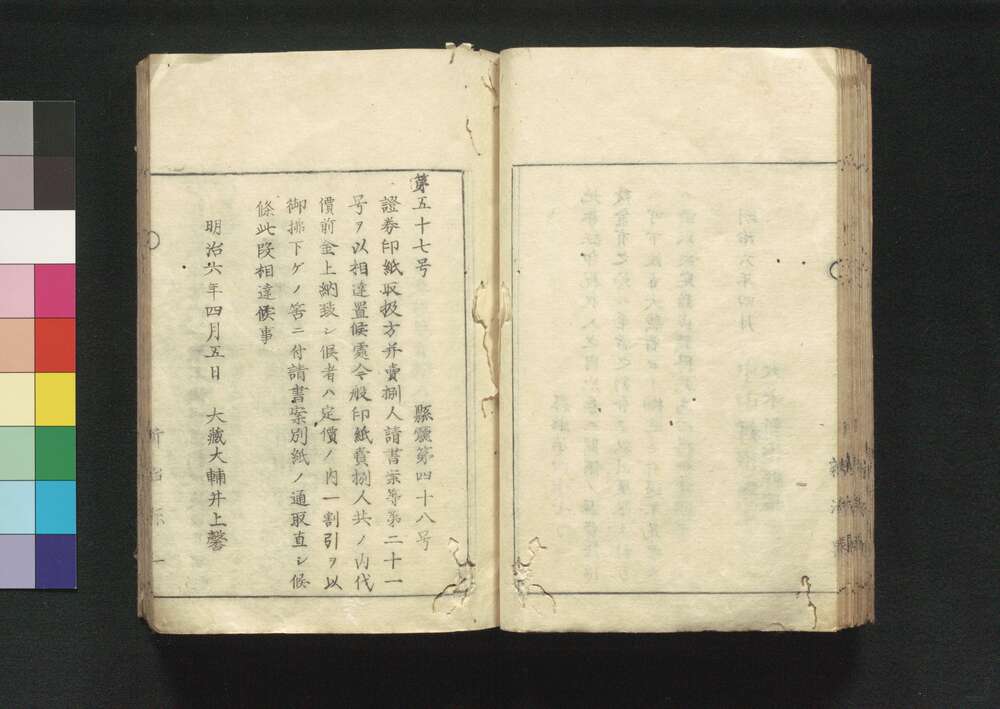 第五十七号
縣廳第四十八号
證券印紙取扱方并賣捌人請書示等第二十一
号ヲ以相達置候處今般印紙賣捌人共ノ内代
價前金上納致シ候者ハ定價ノ内一割引ヲ以
御拂下ケノ筈ニ付請書案別紙ノ通取直シ候
條此段相達候事
明治六年四月五日 大藏大輔井上馨